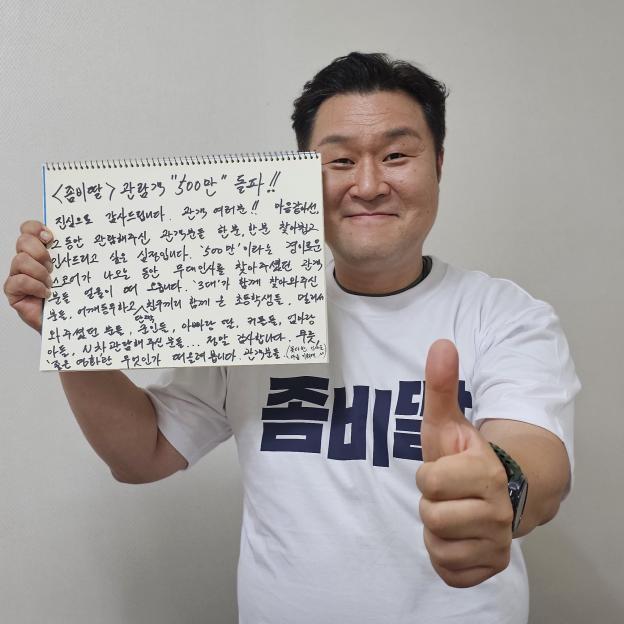 <좀비딸> 관람객 "500만" 돌파!!
진심으로 감사드립니다. 관객 여러분!! 마음같아선,
그동안 관람해주신 관객분들 한분, 한분 찾아뵙고
인사드리고 싶은 심정입니다. '500만'이라는 경이로운
스코어가 나오는 동안 무대인사를 찾아주셨던 관객
분들 얼굴이 떠 오릅니다. '3대'가 함께 찾아와주신
분들, 어깨동무하고 친구끼리 함께 온 초등학생들, 멀리서
단짝
와주셨던 분들, 군인들, 아빠랑 딸, 커플들, 엄마랑
아들, N차 관람해 주신 분들... 정말 감사합니다. 무릇,
'좋은 영화란 무엇인가' 떠올려 봅니다. 관객분들
좀비딸